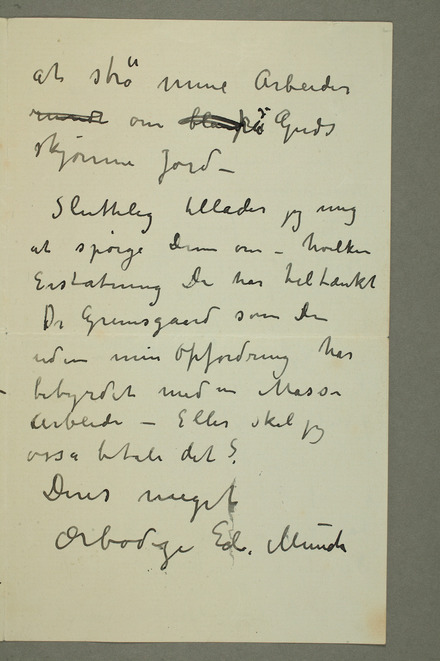 at strö mine Arbeider
rundt om blandt på Guds
skjønne Jord –
Sluttelig tillader jeg mig
at spørge Dem om – hvilken
Erstatning De har tiltænkt
Dr Grimsgaard som De
uden min Opfordring har
bebyrdet med en Masse
Arbeide – Eller skal jeg
også betale det?
Deres meget
ærbødige Edv. Munch